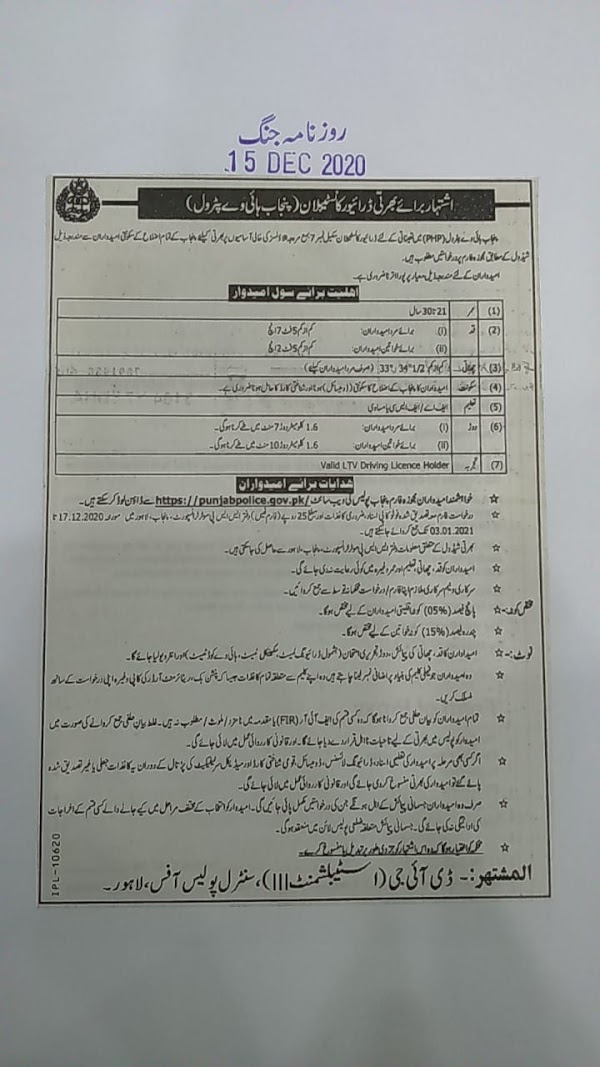 روزنامہ جنگ
15 DEC 2020
اشتہار برائے بھرتی ڈرائیور کانسٹیبلان (پنجاب ہائی وے پٹرول)
پنجاب ہائی وے پٹرول (PHP) میں تعیناتی کے لئے ڈرائیور کانسٹیبلان سکیل نمبر 7 بمع مروجہ الاؤنسز کی خالی آسامیوں پر بھرتی کیلئے پنجاب کے تمام اضلاع کے سکونتی امیدواران سے مندرجہ ذیل
شیڈول کے مطابق مجوزہ فارم پر درخواستیں مطلوب ہیں۔
امیدواران کے لئے مندرجہ ذیل معیار پر پورا اترنا ضروری ہے۔
اہلیت برائے سول امیدوار
(1) عمر 21 تا 30 سال
(2) قد (i) برائے مرد امیدواران: کم از کم 5 فٹ 7 انچ
(ii) برائے خواتین امیدواران: کم از کم 5 فٹ 2 انچ
(3) چھاتی کم از کم 33" x 34 1/2" (صرف مرد امیدواران کیلئے)
(4) سکونت امیدواران کا پنجاب کے اضلاع کا سکونتی (ڈومیسائل) ہونا اور شناختی کارڈ کا حامل ہونا ضروری ہے۔
(5) تعلیم ایف اے / ایف ایس سی یا مساوی
(6) دوڑ (i) برائے مرد امیدواران: 1.6 کلومیٹر دوڑ 7 منٹ میں طے کرنا ہوگی۔
(ii) برائے خواتین امیدواران: 1.6 کلومیٹر دوڑ 10 منٹ میں طے کرنا ہوگی۔
(7) تجربہ Valid LTV Driving Licence Holder
ہدایات برائے امیدواران
☆ خواہشمند امیدواران مجوزہ فارم پنجاب پولیس کی ویب سائٹ https://punjabpolice.gov.pk/ سے ڈاؤن لوڈ کر سکتے ہیں۔
☆ درخواست فارم مع تصدیق شدہ فوٹو کاپی اسناد، ضروری کاغذات اور مبلغ 25 روپے (فارم فیس) دفتر ایس ایس پی موٹر ٹرانسپورٹ، پنجاب، لاہور میں مورخہ 17.12.2020 تا
03.01.2021 تک جمع کروائے جاسکتے ہیں۔
☆ بھرتی شیڈول کے متعلق معلومات دفتر ایس ایس پی موٹر ٹرانسپورٹ، پنجاب، لاہور سے حاصل کی جاسکتی ہیں۔
☆ امیدواران کو قد، چھاتی، تعلیم اور عمر وغیرہ میں کوئی رعایت نہ دی جائے گی۔
☆ سرکاری و نیم سرکاری ملازم اپنا فارم / درخواست محکمانہ توسط سے جمع کروائیں۔
مختص کوٹہ:- ☆ پانچ فیصد (05%) کوٹہ اقلیتی امیدواران کے لیے مختص ہوگا۔
☆ پندرہ فیصد (15%) کوٹہ خواتین کے لیے مختص ہوگا۔
نوٹ:- ☆ امیدواران کا قد، چھاتی کی پیمائش، دوڑ، تحریری امتحان (بشمول ڈرائیونگ ٹیسٹ، مکینیکل ٹیسٹ، ہائی وے کوڈ ٹیسٹ) اور انٹرویو لیا جائے گا۔
☆ وہ امیدواران جو فیملی کلیم کی بنیاد پر اضافی نمبر لینا چاہتے ہیں وہ اپنے کلیم سے متعلقہ تمام کاغذات جیسا کہ پنشن بک، ریٹائرمنٹ آرڈر کی کاپی وغیرہ اپنی درخواست کے ساتھ
منسلک کریں۔
☆ تمام امیدواران کو بیان حلفی جمع کروانا ہوگا کہ وہ کسی قسم کی ایف آئی آر (FIR) یا مقدمہ میں نامزد / ملوث / مطلوب نہ ہیں۔ غلط بیان حلفی جمع کروانے کی صورت میں
امیدوار کو پولیس میں بھرتی کے لیے تاحیات نااہل قرار دے دیا جائے گا۔ اور قانونی کارروائی عمل میں لائی جائے گی۔
☆ اگر کسی بھی مرحلہ پر امیدوار کی تعلیمی اسناد، ڈرائیونگ لائسنس، ڈومیسائل، قومی شناختی کارڈ اور میڈیکل سرٹیفکیٹ کی پڑتال کے دوران یہ کاغذات جعلی یا غیر تصدیق شدہ
پائے گئے تو امیدوار کی بھرتی منسوخ کر دی جائے گی اور قانونی کارروائی عمل میں لائی جائے گی۔
☆ صرف وہ امیدواران جسمانی پیمائش کے اہل ہونگے جن کی درخواستیں مکمل پائی جائیں گی۔ امیدوار کو انتخاب کے مختلف مراحل میں کیے جانے والے کسی قسم کے اخراجات
کی ادائیگی نہ کی جائے گی۔ جسمانی پیمائش متعلقہ ضلعی پولیس لائن میں منعقد ہوگی۔
☆ محکمہ کو اختیار ہوگا کہ وہ اس اشتہار کو جزوی طور پر تبدیل یا منسوخ کرے۔
المشتہر:- ڈی آئی جی (اسٹیبلشمنٹ III)، سنٹرل پولیس آفس، لاہور۔
IPL-10620